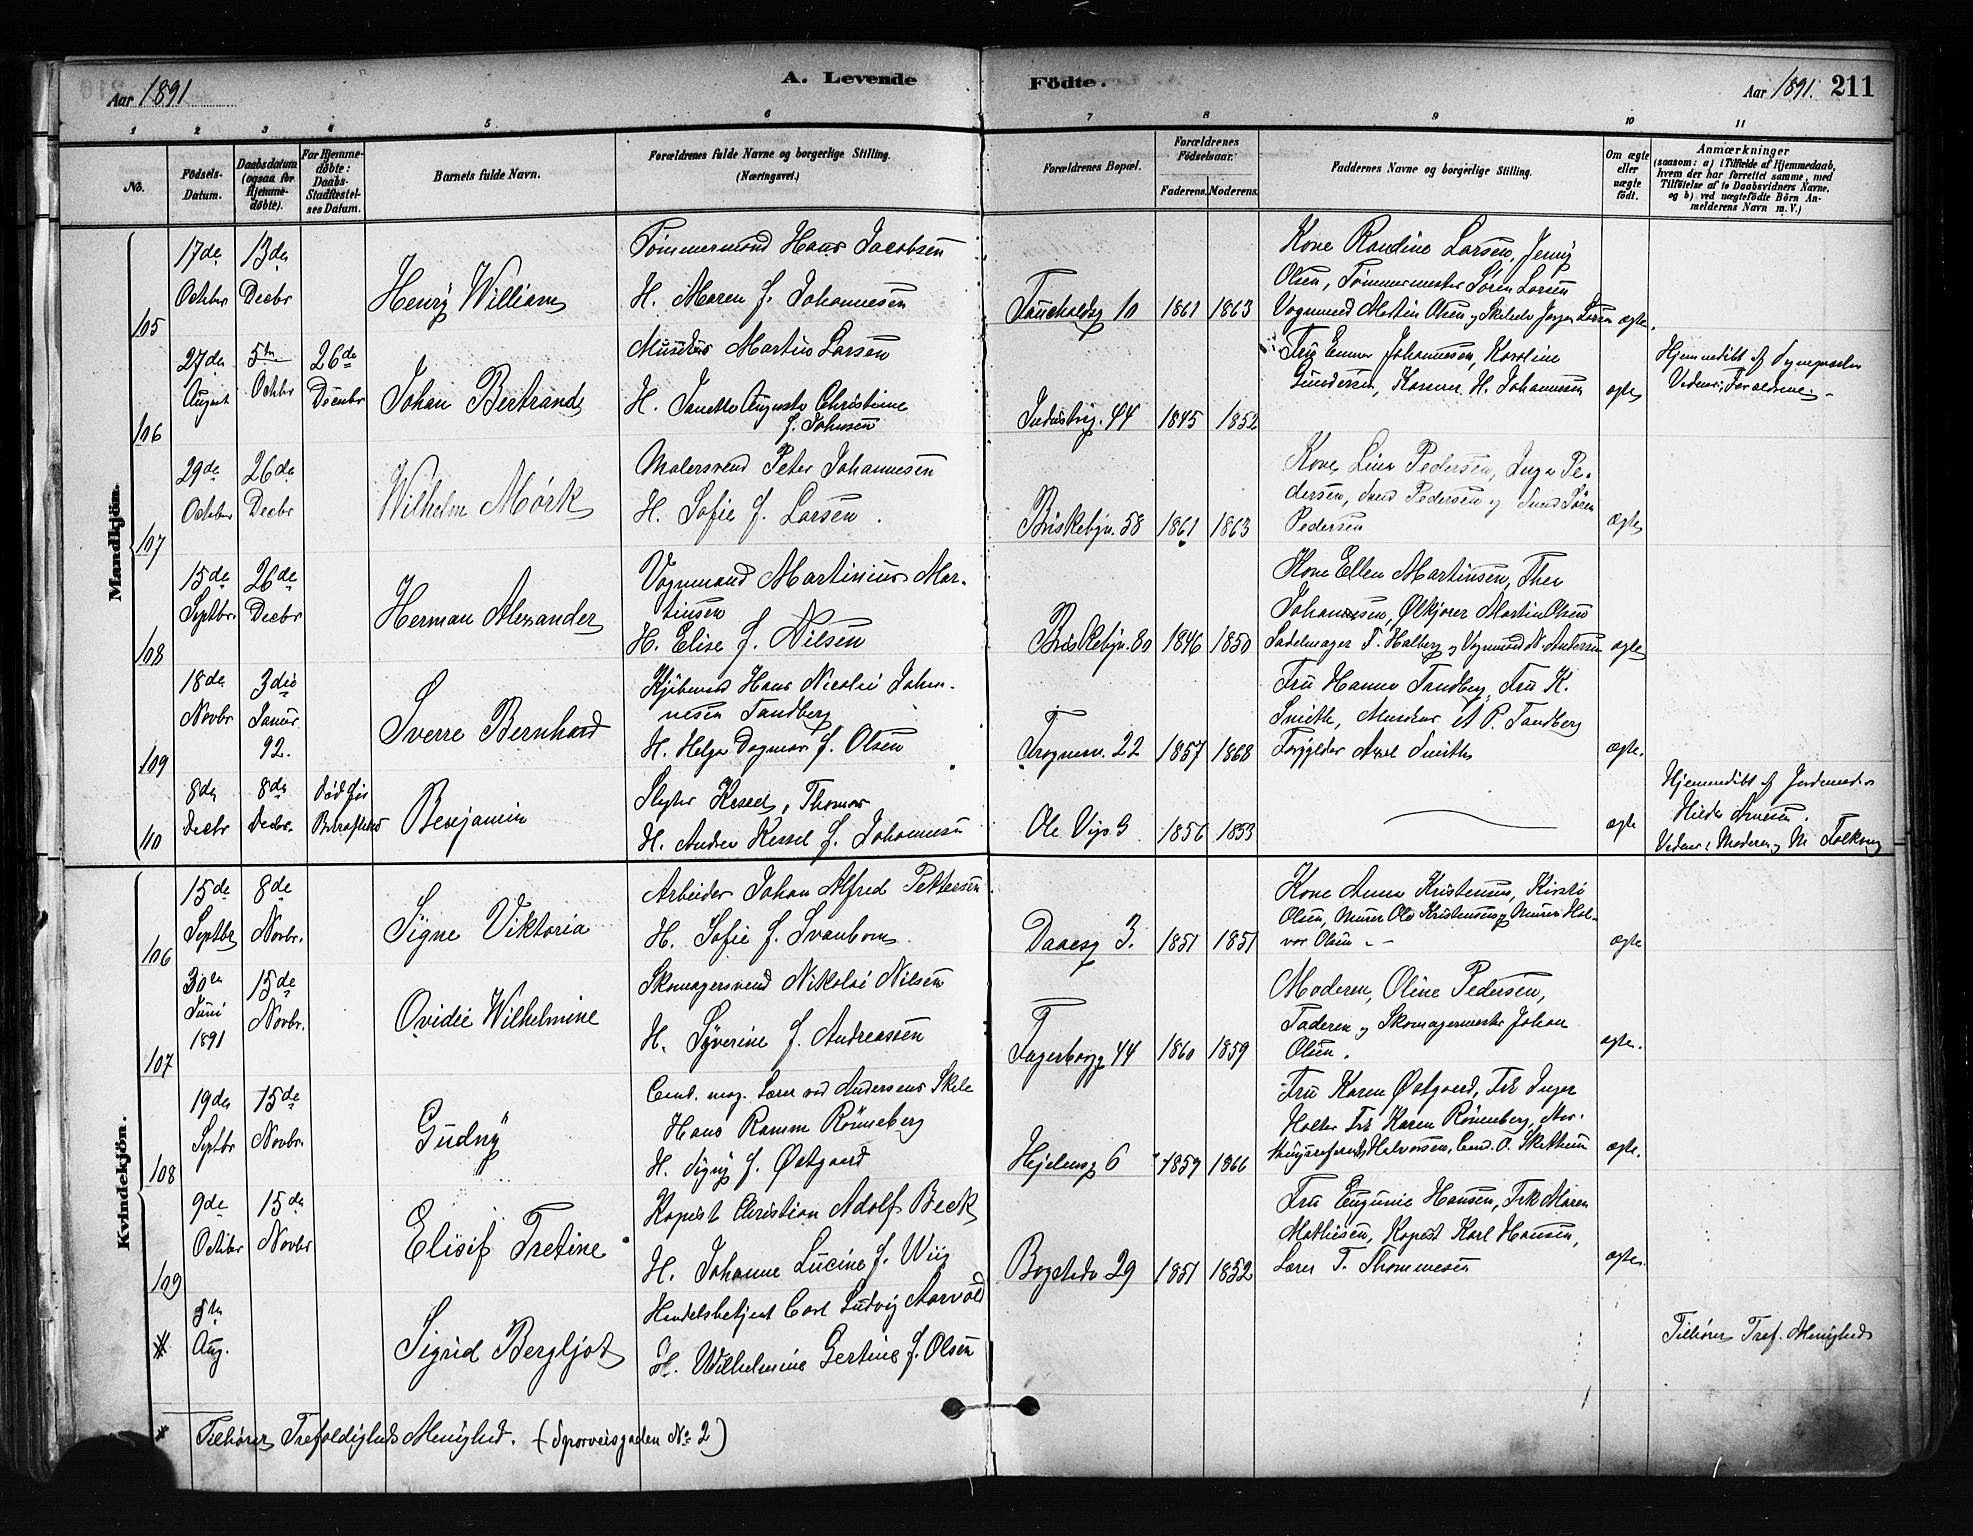 Aar 1891
A. Levende
Födte.
Aar 1891. 211
1 2 3 4 5 6 7 8 9 10 11
No.
Födsels-Datum.
Daabsdatum (ogsaa for Hjemme-döbte).
For Hjemme-döbte: Daabs-Stadfæstel-ses Datum.
Barnets fulde Navn.
Forældrenes fulde Navne og borgerlige Stilling.
(Næringsvei.)
Forældrenes Bopæl.
Forældrenes Födselsaar.
Faderens. Moderens.
Faddernes Navne og borgerlige Stilling.
Om ægte eller uægte födt.
Anmærkninger
(saasom: a) i Tilfælde af Hjemmedaab, hvem der har forrettet samme, med Tilföielse af to Daabsvidners Navne. og b) ved uægtefödte Börn An-melderens Navn m. V.)
Mandkjön.
105
17de Octbr
13de Decbr
Henry William
Tømmermand Hans Jacobsen
H. Maren f. Johannesen
10
1861 1863
Kone Randine Larsen, Jenny
Olsen, Tømmermester Søren Larsen
Vognmand Martin Olsen og Jørgen Larsen
ægte.
106
27de August
5te Octbr
26de Decbr
Johan Bertrand
Musikus Martin Larsen
H. Janette Augusta Christine
f. Johnsen
Industrig. 44
1845 1852
Fru Emma Johannesen, Karoline
Gundersen, H. Johannesen
ægte
Hjemmedøbt af
Vidner: Forældrene.
107
29de Octbr
26de Decbr
Wilhelm Mörk
Malersvend Peter Johannesen
H. Sofie f. Larsen.
Briskebyv. 58
1861 1863
Kone Lina Pedersen, Inga Pe-
dersen, Pedersen og Søren
Pedersen
ægte
108
15de Septbr.
26de Decbr
Herman Alexander
Vognmand Martinius Mar-
tinsen
H. Elise f. Nilsen
Briskebyv. 80
1846 1850
Kone Ellen Martinsen, Thea
Johannesen, Ølkjører Martin Olsen
Sadelmager T. Halberg og Vognmand N. Andersen
ægte
109
18de Novbr
3die Januar 92.
Sverre Bernhard
Kjøbmand Hans Nicolai Johan-
nesen Tandberg
H. Helga Dagmar f. Olsen
Frognerv. 22
1857 1868
Fru Hanna Tandberg, Fru K.
Smith, Musikus A P. Tandberg
Forgylder Axel Smith
ægte.
110
8de Decbr
8de Decbr.
Død før Bekræftelsen
Benjamin
Slagter Kessel, Thomas
H. Andrea Kessel f. Johannesen
Ole Vigs 3
1856 1853
ægte
Hjemmedøbt af Jordemoder
Hilda Arnesen.
Vidner: Moderen og M Falkeng
Kvindekjön.
106
15de Septbr
8de Novbr.
Signe Viktoria
Arbeider Johan Alfred Pettersen
H. Sofie f. Svanbom
Daaesg 3.
1851 1851
Kone Anna Kristensen, Kirsti
Olsen, Murer Ole Kristensen og Murer Hal-
vor Olsen
ægte
107
30te Juni 1891
15de Novbr.
Ovidie Wilhelmine
Skomagersvend Nikolai Nilsen
H. Syverine f. Andreassen
Fagerborgg 44
1860 1859
Moderen, Oline Pedersen,
Faderen og Skomagermester Johan
Olsen.
ægte.
108
19de Septbr
15de Novbr.
Gudny
Cand. mag. Lærer ved Andersens Skole
Hans Ramm Rönneberg
H. Signy f. Østgaard
6
1859 1866
Fru Karen Østgaard, Frk Inger
Holter Frk Karen Rönneberg, Stor-
Halvorsen, Cand. O. Skattum
ægte.
109
9de Octbr
15de Novbr
Elisif Tretine
Kopist Christian Adolf Beck
H. Johanne Lucine f. Wiig
Bogstadv 29
1851 1852
Fru Eugenie Hansen, Frk Maren
Mathiesen, Kopist Karl Hansen,
Lærer T. Thommesen
ægte.
*
5te Aug.
Sigrid Bergljot
Handelsbetjent Carl Ludvig Aarvold
H. Wilhelmine Gertine f. Olsen
Tilhører Tref. Menighed
* Tilhører Trefoldigheds Menighed. (Sporveisgaden No 2)